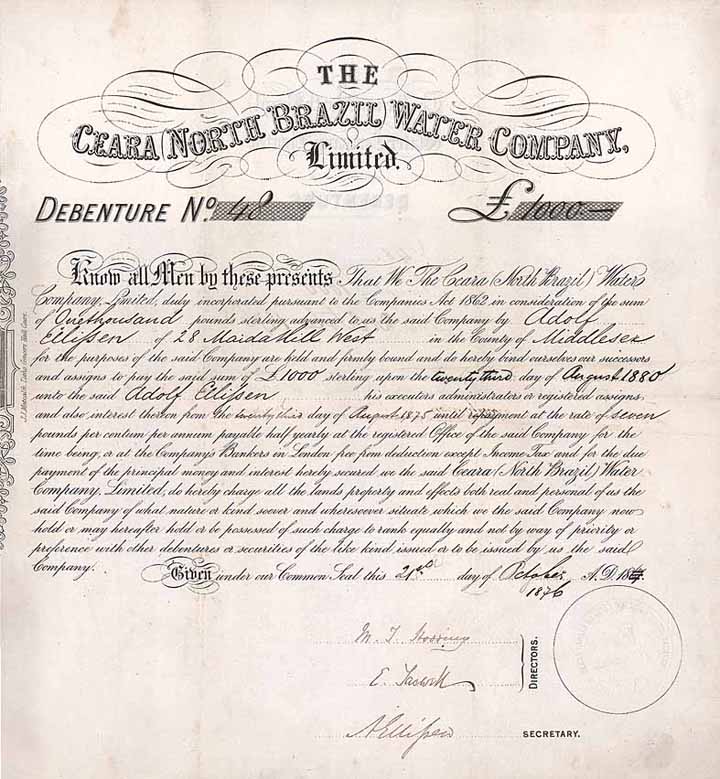 THE
CEARA (NORTH BRAZIL) WATER COMPANY,
Limited.
DEBENTURE No. 48 £ 1000.—
Know all Men by these presents That We The Ceara (North Brazil) Water
Company, Limited, duly incorporated pursuant to the Companies Act 1862 in consideration of the sum
of Onethousand pounds sterling advanced to us the said Company by Adolf
Ellissen of 28 Maida Hill West in the County of Middlesex
for the purposes of the said Company are held and firmly bound and do hereby bind ourselves our successors
and assigns to pay the said sum of £1000 sterling upon the twentythird day of August 1880
unto the said Adolf Ellissen his executors administrators or registered assigns,
and also interest thereon from the twentythird day of August 1875 until repayment at the rate of seven
pounds per centum per annum payable half yearly at the registered Office of the said Company for the
time being, or at the Company's Bankers in London free from deduction except Income Tax and for the due
payment of the principal money and interest hereby secured we the said Ceara (North Brazil) Water
Company, Limited, do hereby charge all the lands property and effects both real and personal of us the
said Company of what nature or kind soever and wheresoever situate which we the said Company now
hold or may hereafter hold or be possessed of such charge to rank equally and not by way of priority or
preference with other debentures or securities of the like kind issued or to be issued by us the said
Company.
Given under our Common Seal this 21st day of October A.D. 18
1876
DIRECTORS.
A Ellissen SECRETARY.